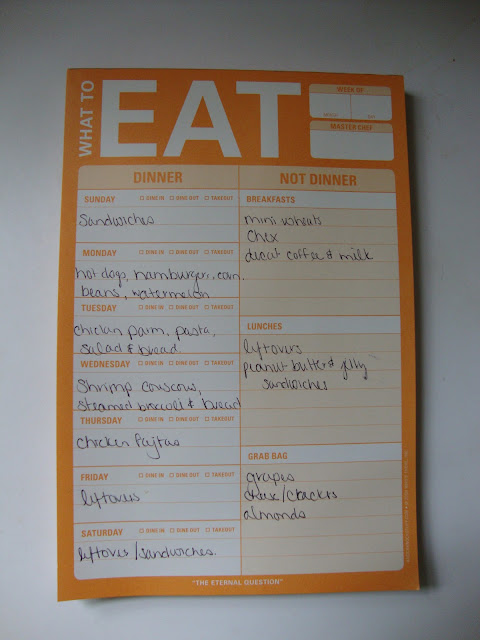 WHAT TO
EAT
WEEK OF
MASTER CHEF
DINNER
NOT DINNER
SUNDAY DINE IN DINE OUT TAKEOUT
sandwiches
MONDAY DINE IN DINE OUT TAKEOUT
hot dogs, hamburgers, corn,
beans, watermelon
TUESDAY DINE IN DINE OUT TAKEOUT
chicken parm, pasta,
salad & bread
WEDNESDAY DINE IN DINE OUT TAKEOUT
Shrimp couscous,
steamed broccoli & bread
THURSDAY DINE IN DINE OUT TAKEOUT
chicken fajitas
FRIDAY DINE IN DINE OUT TAKEOUT
leftovers
SATURDAY DINE IN DINE OUT TAKEOUT
leftovers/sandwiches.
BREAKFASTS
mini wheats
chex
decaf coffee & milk
LUNCHES
leftovers
peanut butter & jelly
sandwiches
GRAB BAG
grapes
cheese/crackers
almonds
"THE ETERNAL QUESTION"